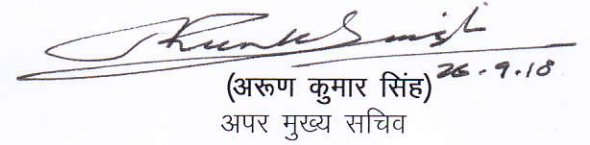 26.9.18
(अरूण कुमार सिंह)
अपर मुख्य सचिव